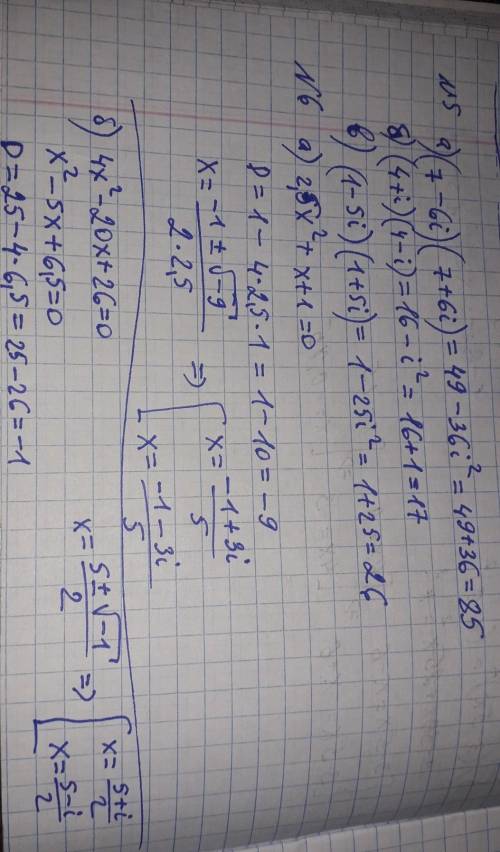 N5 а) (7-6i)(7+6i) = 49-36i² = 49+36=85
б) (4+i)(4-i)=16-i² = 16+1=17
в) (1-5i)(1+5i)= 1-25i² = 1+25=26
N6 а) 2,5x²+x+1=0
D=1-4·2,5·1=1-10=-9
x= (-1±√-9)/(2·2,5) => [ x= (-1+3i)/5
[ x= (-1-3i)/5
б) 4x²-20x+26=0
x²-5x+6,5=0
D=25-4·6,5=25-26=-1
x= (5±√-1)/2 => [ x= (5+i)/2
[ x= (5-i)/2